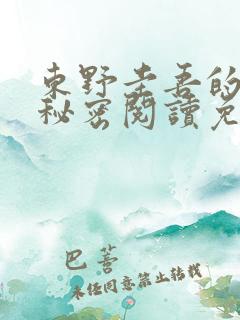 東野圭吾的
秘密閱讀免
巴蒼
未經同意禁止轉載